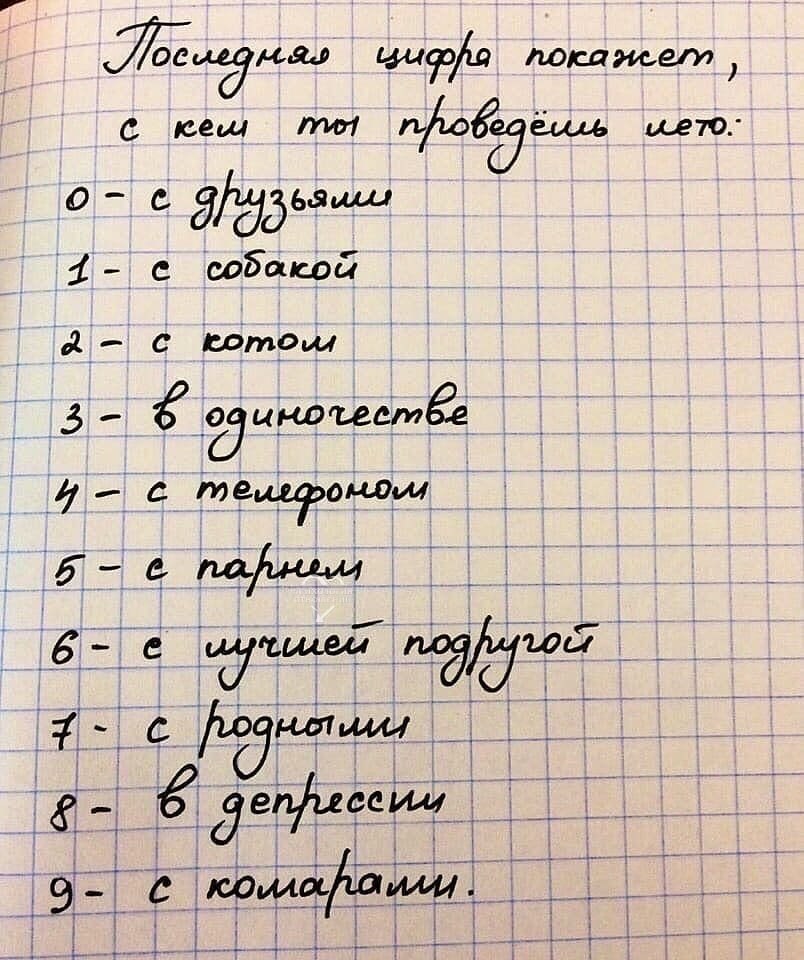 Последняя цифра покажет,
с кем ты проведёшь лето:
0 - с друзьями
1 - с собакой
2 - с котом
3 - в одиночестве
4 - с телефоном
5 - с парнем
6 - с лучшей подругой
7 - с родными
8 - в депрессии
9 - с комарами.